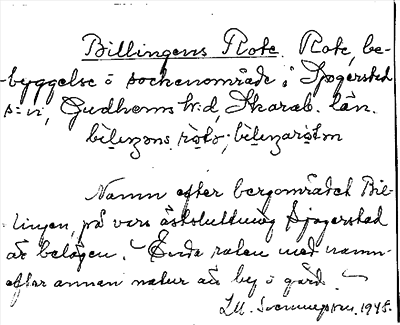 Billingens Rote. Rote, be-
byggelse o sockenområde i Sjogerstad
s:n, Gudhems h:d, Skarab. län.
bilinzans rotə, bilinzarotən
Namn efter bergområdet Bil-
lingen, på vars östsluttning Sjogerstad
är belägen. Enda roten med namn
efter annan natur än by o gård.
1945.